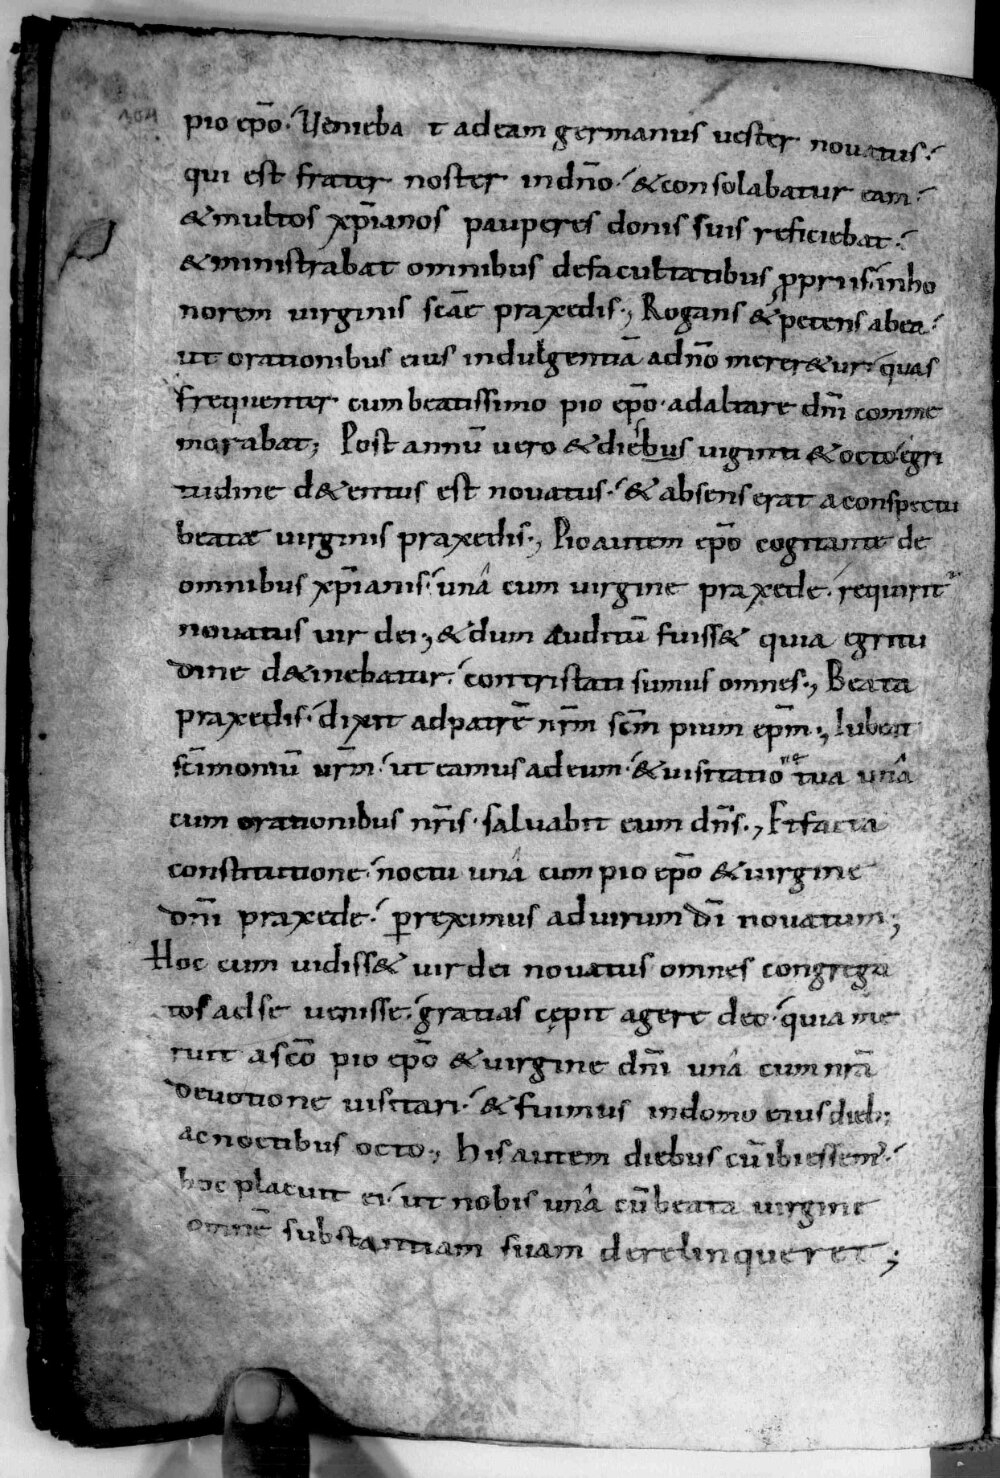 pio ep̄o· Ueniebat ad eam germanus uester nouatus·
qui est frater noster in dn̄o· & consolabatur eam·
& multos xp̄ianos pauperes donis suis reficiebat·
& ministrabat omnibus de facultatibus propriis· in ho
norem uirginis scāe praxedis·, Rogans & petens ab ea·
ut orationibus eius indulgentiā a dn̄o merer&ur· quas
frequenter cum beatissimo pio ep̄o· ad altare dn̄i comme
morabat; Post annū uero & diebus uiginti & octo· ęgri
tudine d&entus est nouatus· & absens erat a conspectu
beatæ uirginis praxedis·, Pio autem ep̄o cogitante de
omnibus xp̄ianis· unâ cum uirgine praxede· requirit᷑
nouatus uir dei·, & dum auditū fuiss& quia egritu
dine d&inebatur· contristati sumus omnes·, Beata
praxedis· dixit ad patrē nr̄m scm̄ pium ep̄m·, Iubeat
sc̄imoniū ur̄m· ut eamus ad eum· & uisitatione tua unâ
cum orationibus nr̄is· saluabit eum dn̄s·, Et facta
constitutione· noctu unâ cum pio ep̄o & uirgine
dn̄i praxede· perreximus ad uirum dī nouatum;
Hoc cum uidiss& uir dei nouatus omnes congrega
tos ad se uenisse· gratias cępit agere deo· quia me
ruit a scō pio ep̄o & uirgine dn̄i unâ cum nrā
deuotione uisitari· & fuimus in domo eius dieb;
ac noctibus octo·, his autem diebus cū ibi essem᷑·
hoc placuit ei· ut nobis unâ cū beata uirgine
omnē substantiam suam derelinqueret;
104